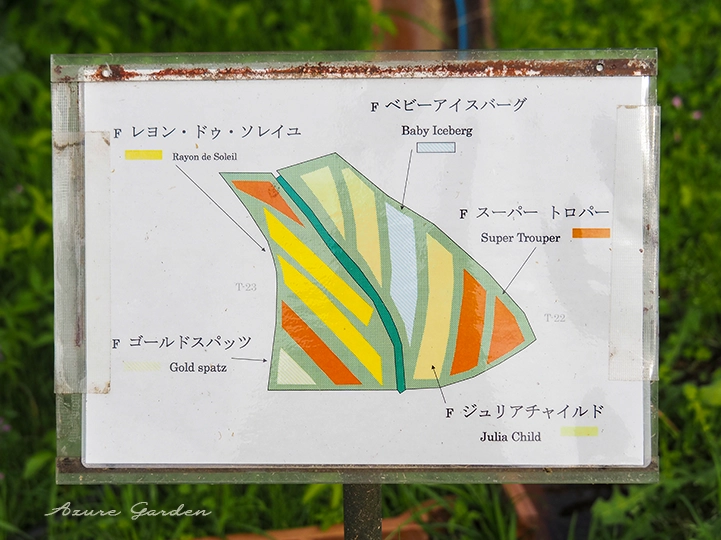 F ベビーアイスバーグ
Baby Iceberg
F レヨン・ドゥ・ソレイユ
Rayon de Soleil
F スーパー トロパー
Super Trouper
T-23
T-22
F ゴールドスパッツ
Gold spatz
F ジュリアチャイルド
Julia Child
Azure Garden